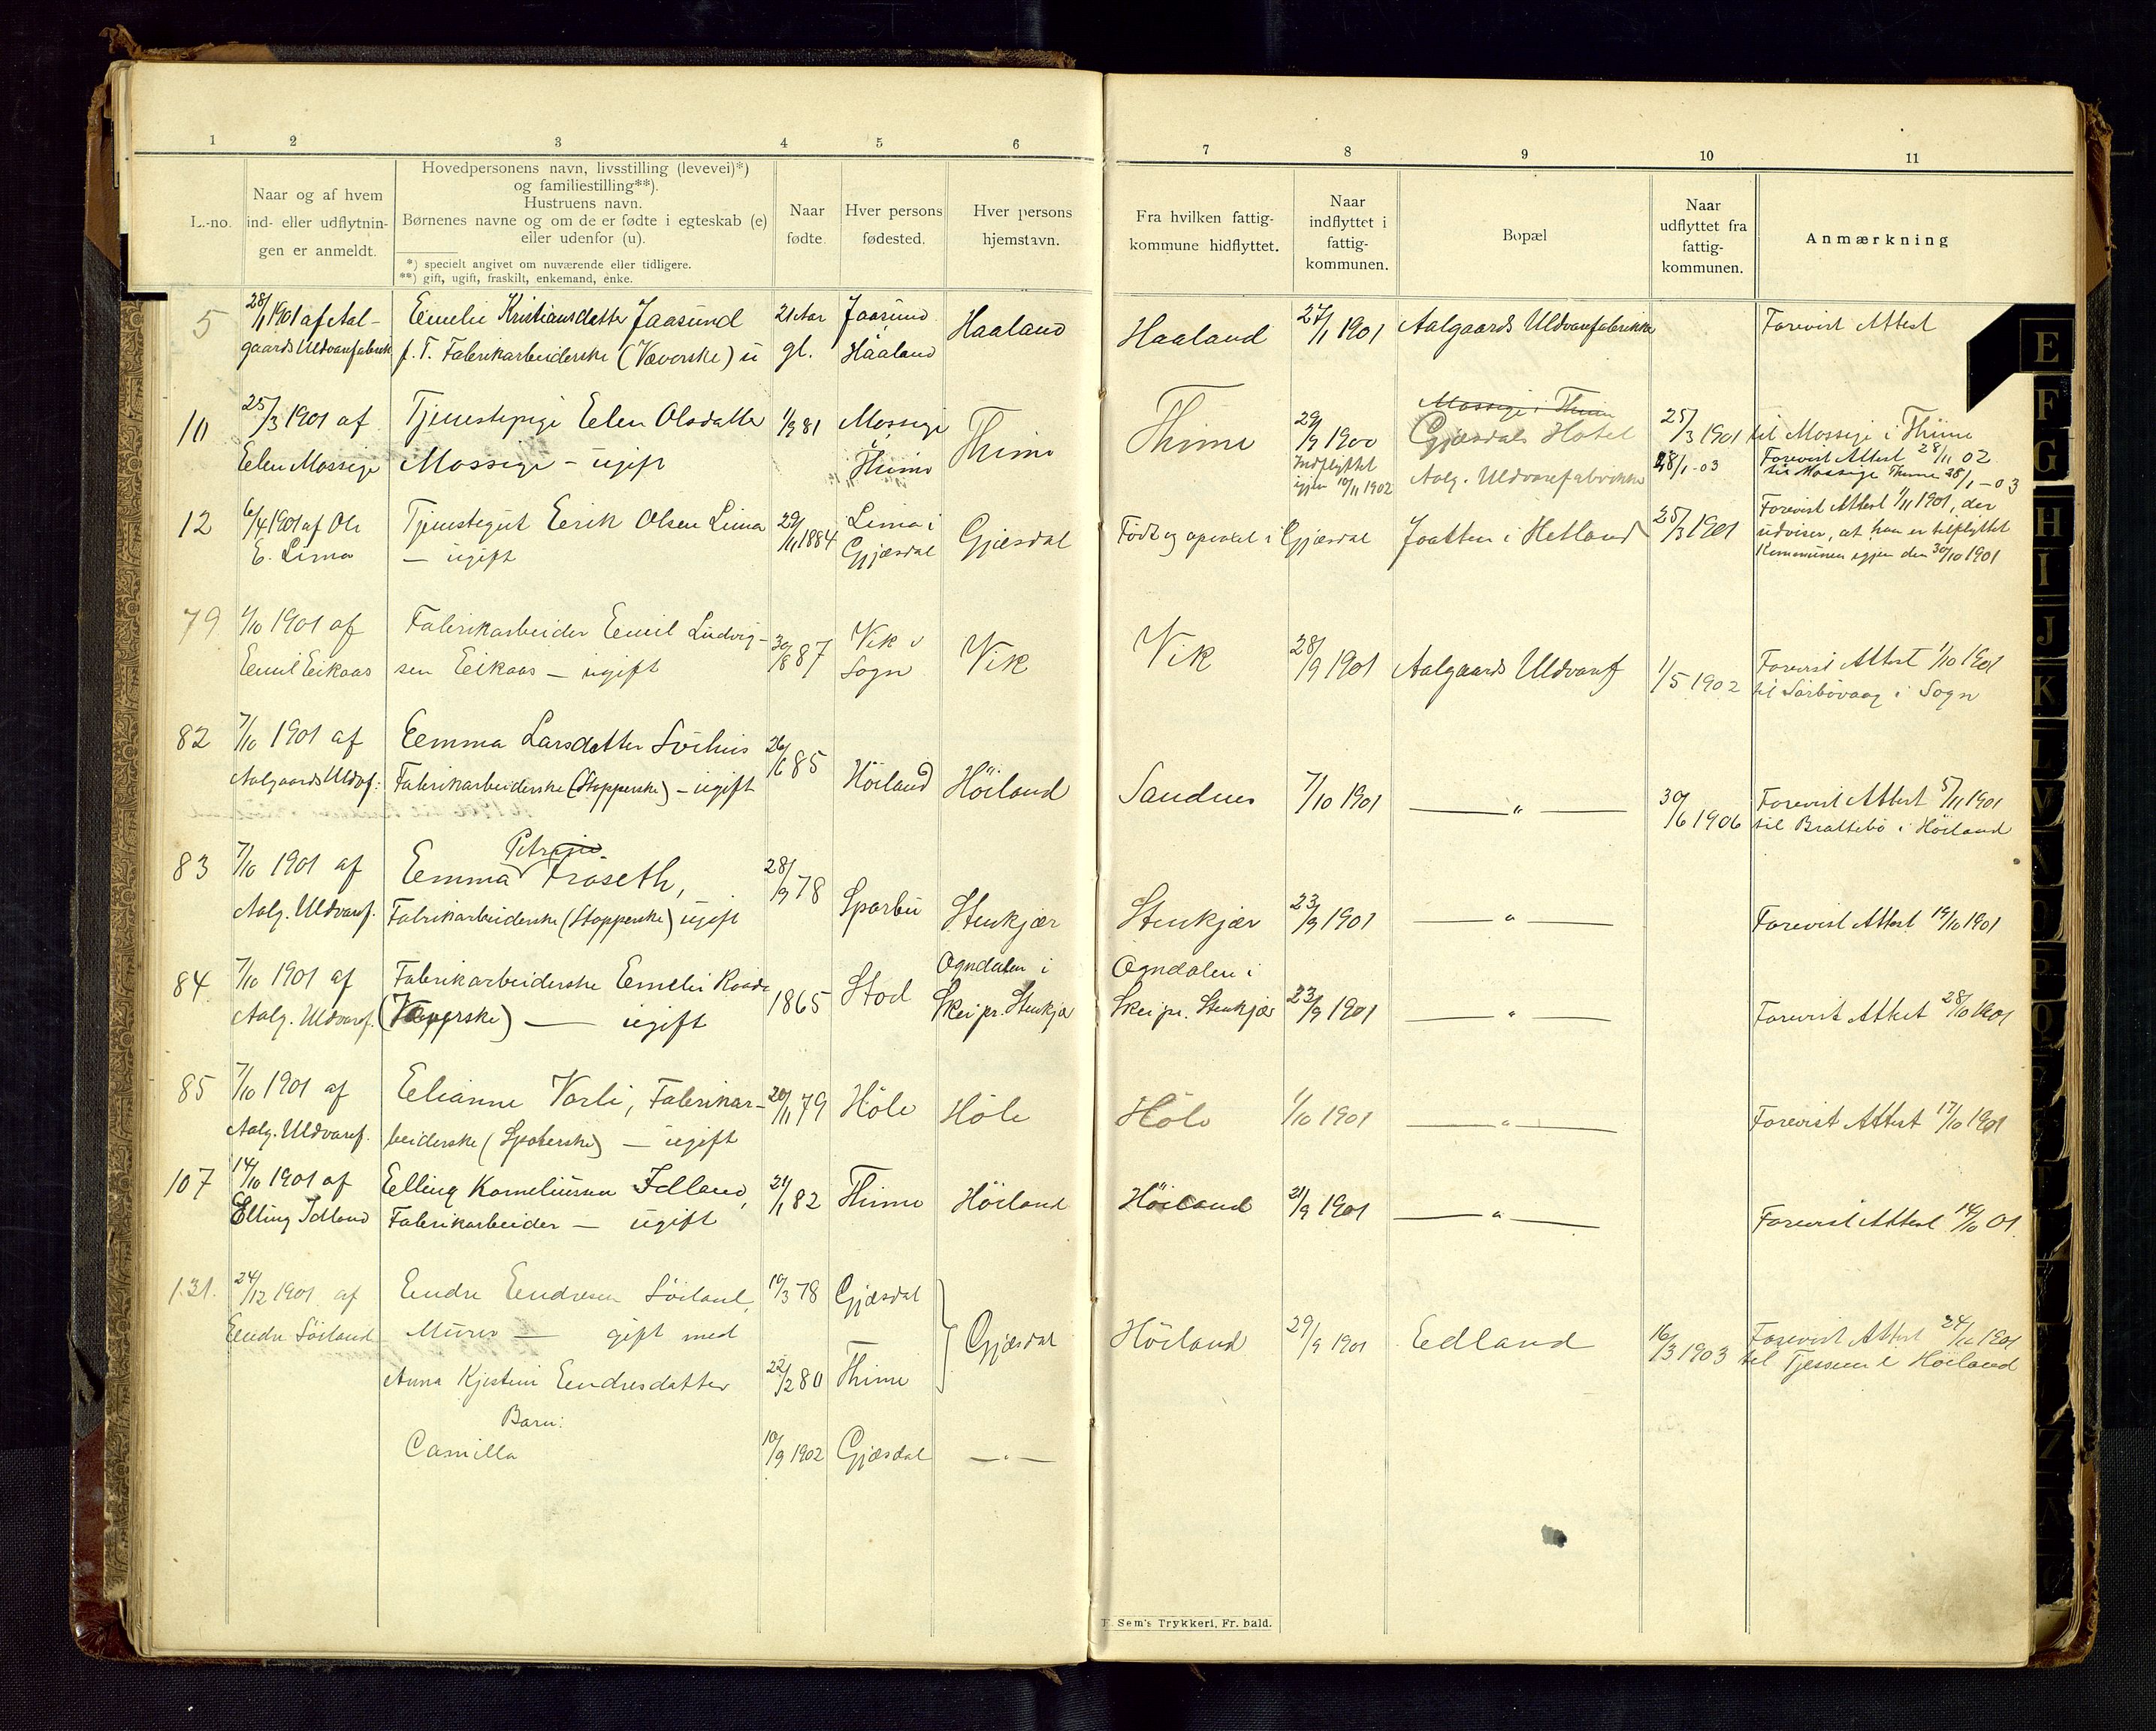 1 2 3 4 5 6 7 8 9 10 11
L.-no.
Naar og af hvem
ind- eller udflytnin-
gen er anmeldt.
Hovedpersonens navn, livsstilling (levevei)*)
og familiestilling**).
Hustruens navn.
Børnenes navne og om de er fødte i egteskab (e)
eller udenfor (u).
*) specielt angivet om nuværende eller tidligere.
**) gift, ugift, fraskilt, enkemand, enke.
Naar
fødte.
Hver persons
fødested.
Hver persons
hjemstavn.
Fra hvilken fattig-
kommune hidflyttet.
Naar
indflyttet i
fattig-
kommunen.
Bopæl
Naar
udflyttet fra
fattig-
kommunen.
Anmærkning
5 28/1 1901 af Aal- Eemelie Kristiansdatter Jaasund 21 Aar Jaasund Haaland Haaland 27/1 1901 Aalgaards Uldvarefabrikke Forevist Attest
gaards Uldvarefabrik f. T. Fabrikarbeiderske (Væverske) u gl. Haaland
10 25/3 1901 af Tjenestepige Eelen Olsdatter 1/9 81 Mossige Thime Thime 29/9 1900 Mossige i Thime
Gjæsdals Hotel 25/3 1901 til Mossige i Thime
Eelen Mossige Mossige - ugift i Thime Indflyttet Forevist Attest 28/11 02
igjen 10/11 1902 Aalg. Uldvarefabrikke 28/1-03 til Mossige Thime 28/1-03
12 6/4 1901 af Ole Tjenestegut Eerik Olsen Lima 29/11 1884 Lima i Gjæsdal Født og opvokst i Gjæsdal Jaatten i Hetland 25/3 1901 Forevist Attest 1/11 1901, der
E. Lima — ugift Gjæsdal udviser, at han er tilflyttet
Kommunen igjen den 30/10 1901
79 1/10 1901 af Fabrikarbeider Eemil Ludvig- 30/8 87 Vik i Vik Vik 28/9 1901 Aalgaards Uldvaref 1/5 1902 Forevist Attest 1/10 1901
Eemil Eikaas sen Eeikaas — ugift Sogn til Sørbøvaag i Sogn
82 7/10 1901 af Eemma Larsdatter Søihus 26/6 85 Höiland Höiland Sandnes 7/10 1901 — „ — 30/6 1906 Forevist Attest 5/11 1901
Aalgaards Uldvf: Fabrikarbeiderske (Stopperske) - ugift til Brattebö i Höiland
Petrine
83 7/10 1901 af Eemma Fröseth, 28/9 78 Sparbu Stenkjær Stenkjær 23/9 1901 — „ — Forevist Attest 19/10 1901
Aalg. Uldvaref. Fabrikarbeiderske (Stopperske) ugift
84 7/10 1901 af Fabrikarbeiderske Eemelie 1865 Stod Ogndalen i Ogndalen i
Aalg. Uldvaref. (Væverske) — ugift Skei pr. Stenkjær Skei pr. Stenkjær 23/9 1901 — „ — Forevist Attest 28/10 1901
85 7/10 1901 af Eelianne Varli, Fabrikar- 20/11 79 Höle Höle Höle 1/10 1901 — „ — Forevist Attest 17/10 1901
Aalg. Uldvaref. beiderske (Spolerske) — ugift
107 14/10 1901 af Eelling Korneliussen Idland, 21/1 82 Thime Höiland Höiland 21/9 1901 — „ — Forevist Attest 14/10 01.
Elling Idland Fabrikarbeider — ugift
131. 24/12 1901 af Eendre Eendresen Söiland, 19/3 78 Gjæsdal Gjæsdal Höiland 29/9 1901 Eedland 16/3 1903 Forevist Attest 24/12 1901
Eendre Söiland Murer — gift med til Tjessem i Höiland
Anna Kjestine Eendresdatter 22/2 80 Thime
Barn:
Camilla 10/9 1902 Gjæsdal — „ —
F. Sem's Trykkeri, Fr. hald.
E
F
G
H
I
J
K
L